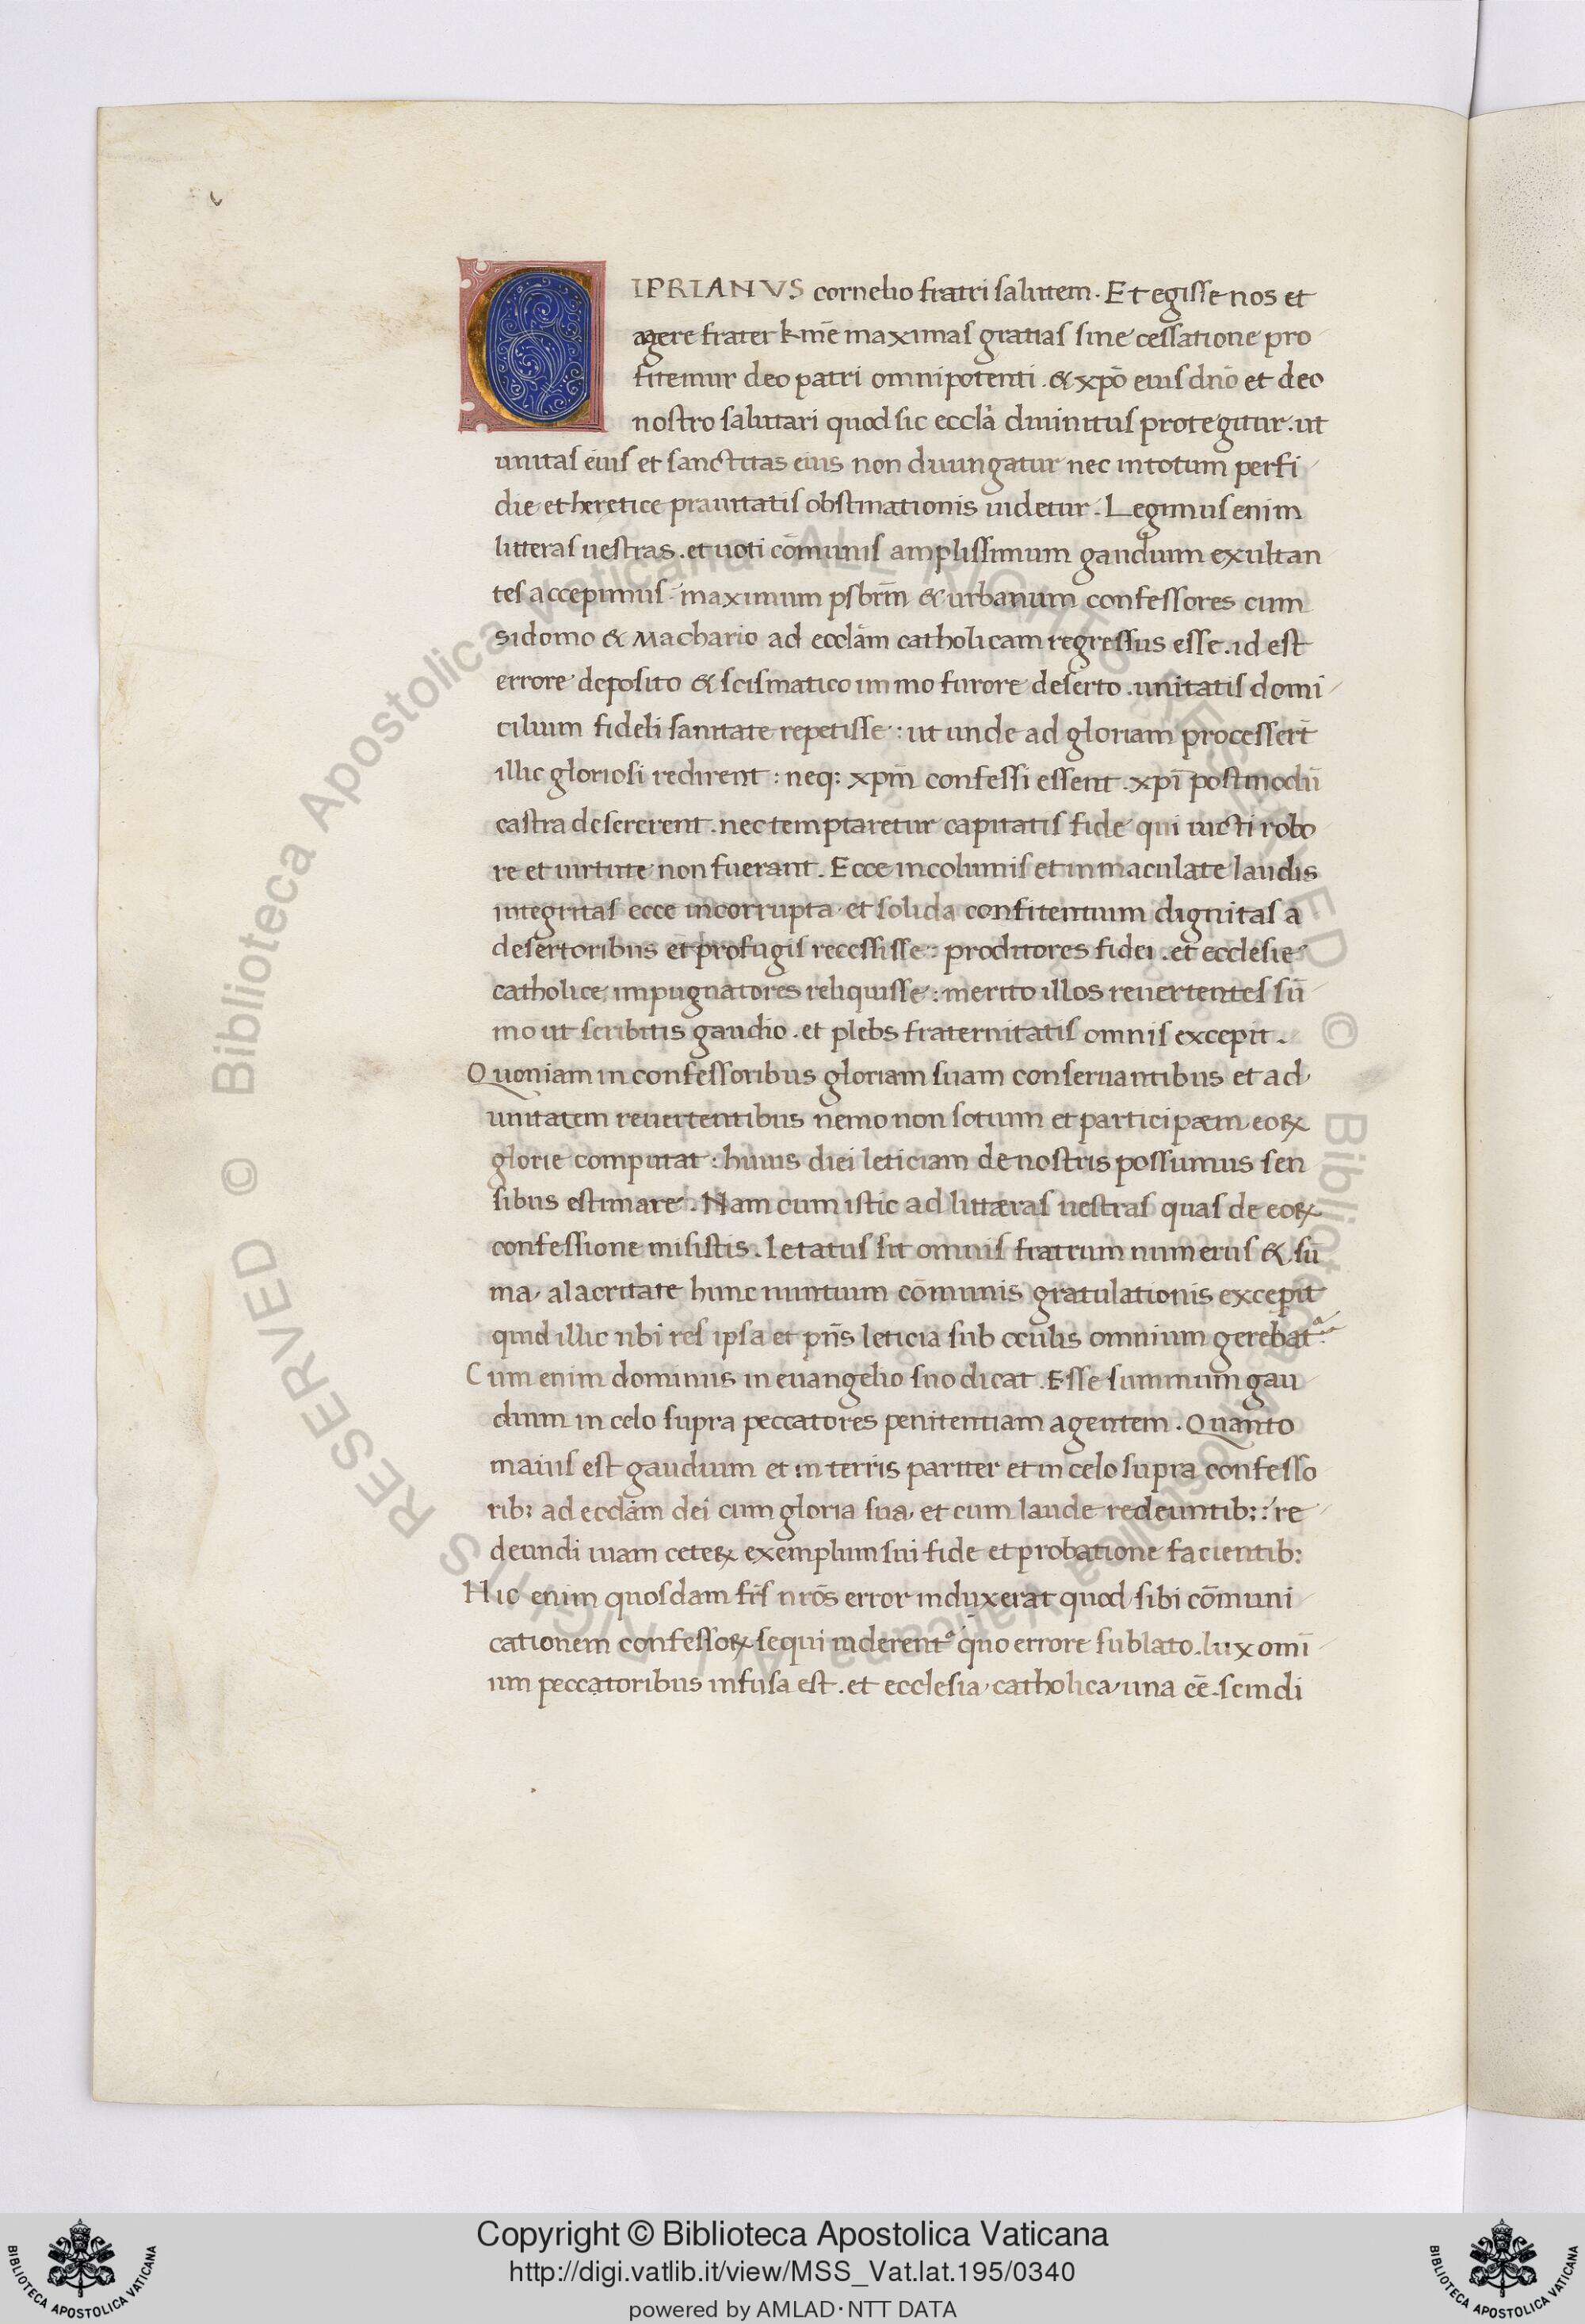 CIPRIANVS cornelio fratri salutem. Et egisse nos et
agere frater kme̅ maximas gratias sine cessatione pro
fitemur deo patri omnipotenti . & xpo̅ eius dno̅ et deo
nostro salutari quod sic eccla̅ diuinitus protegitur . ut
unitas eius et sanctitas eius non diuungatur nec in totum perfi
die et heretice prauitatis obstinationis uidetur . Legimus enim
litteras uestras . et uoti co̅munis amplissimum gaudium exultan
tes accepimus . maximum psbrm̅ & urbanum confessores cum
sidomo & Machario ad eccla̅m catholicam regressus esse . id est
errore deposito & scismatico immo furore deserto . unitatis domi
cilium fideli sanitate repetisse : ut unde ad gloriam processert̅
illic gloriosi redirent : neq: xpm̅ confessi essent . xpi̅ postmodu̅
castra desererent . nec temptaretur capitatis fide qui uicti robo
re et uirtute non fuerant . Ecce incolumis et inmaculate laudis
integritas ecce incorrupta et solida confitentium dignitas a
desertoribus et profugis recessisse : proditores fidei . et ecclesie
catholice impugnatores reliquisse : merito illos reuertentes su̅
mo ut scribitis gaudio . et plebs fraternitatis omnis excepit .
Quoniam in confessoribus gloriam suam conseruantibus et ad
unitatem reuertentibus nemo non sotium et participæm eoꝝ
glorie computat : huius diei leticiam de nostris possumus sen
sibus estimare . Nam cum istic ad litteras uestras quas de eoꝝ
confessione misistis . letatus sit omnis fratrum numerus & su̅
ma alacritate hunc nuntium co̅munis gratulationis excepit
quid illic ubi res ipsa et pn̅s leticia sub oculis omnium gerebat
Cum enim dominus in euangelio suo dicat . Esse summum gau
dium in celo supra peccatores penitentiam agentem . Quanto
maius est gaudium et in terris pariter et in celo supra confesso
rib: ad eccla̅m dei cum gloria sua et cum laude redeuntib: : re
deundi uiam ceteꝝ exemplum sui fide et probatione facientib:
Hic enim quosdam fr̅s nro̅s error induxerat quod sibi co̅muni
cationem confessoꝝ sequi uiderent quo errore sublato . lux omi̅
um peccatoribus infusa est . et ecclesia catholica una ee̅ . scindi
© Biblioteca Apostolica Vaticana ALL RIGHTS RESERVED © Biblioteca Apostolica Vaticana ALL RIGHTS RESERVED
Copyright © Biblioteca Apostolica Vaticana
http://digi.vatlib.it/view/MSS_Vat.lat.195/0340
powered by AMLAD·NTT DATA
BIBLIOTECA APOSTOLICA VATICANA
BIBLIOTECA APOSTOLICA VATICANA